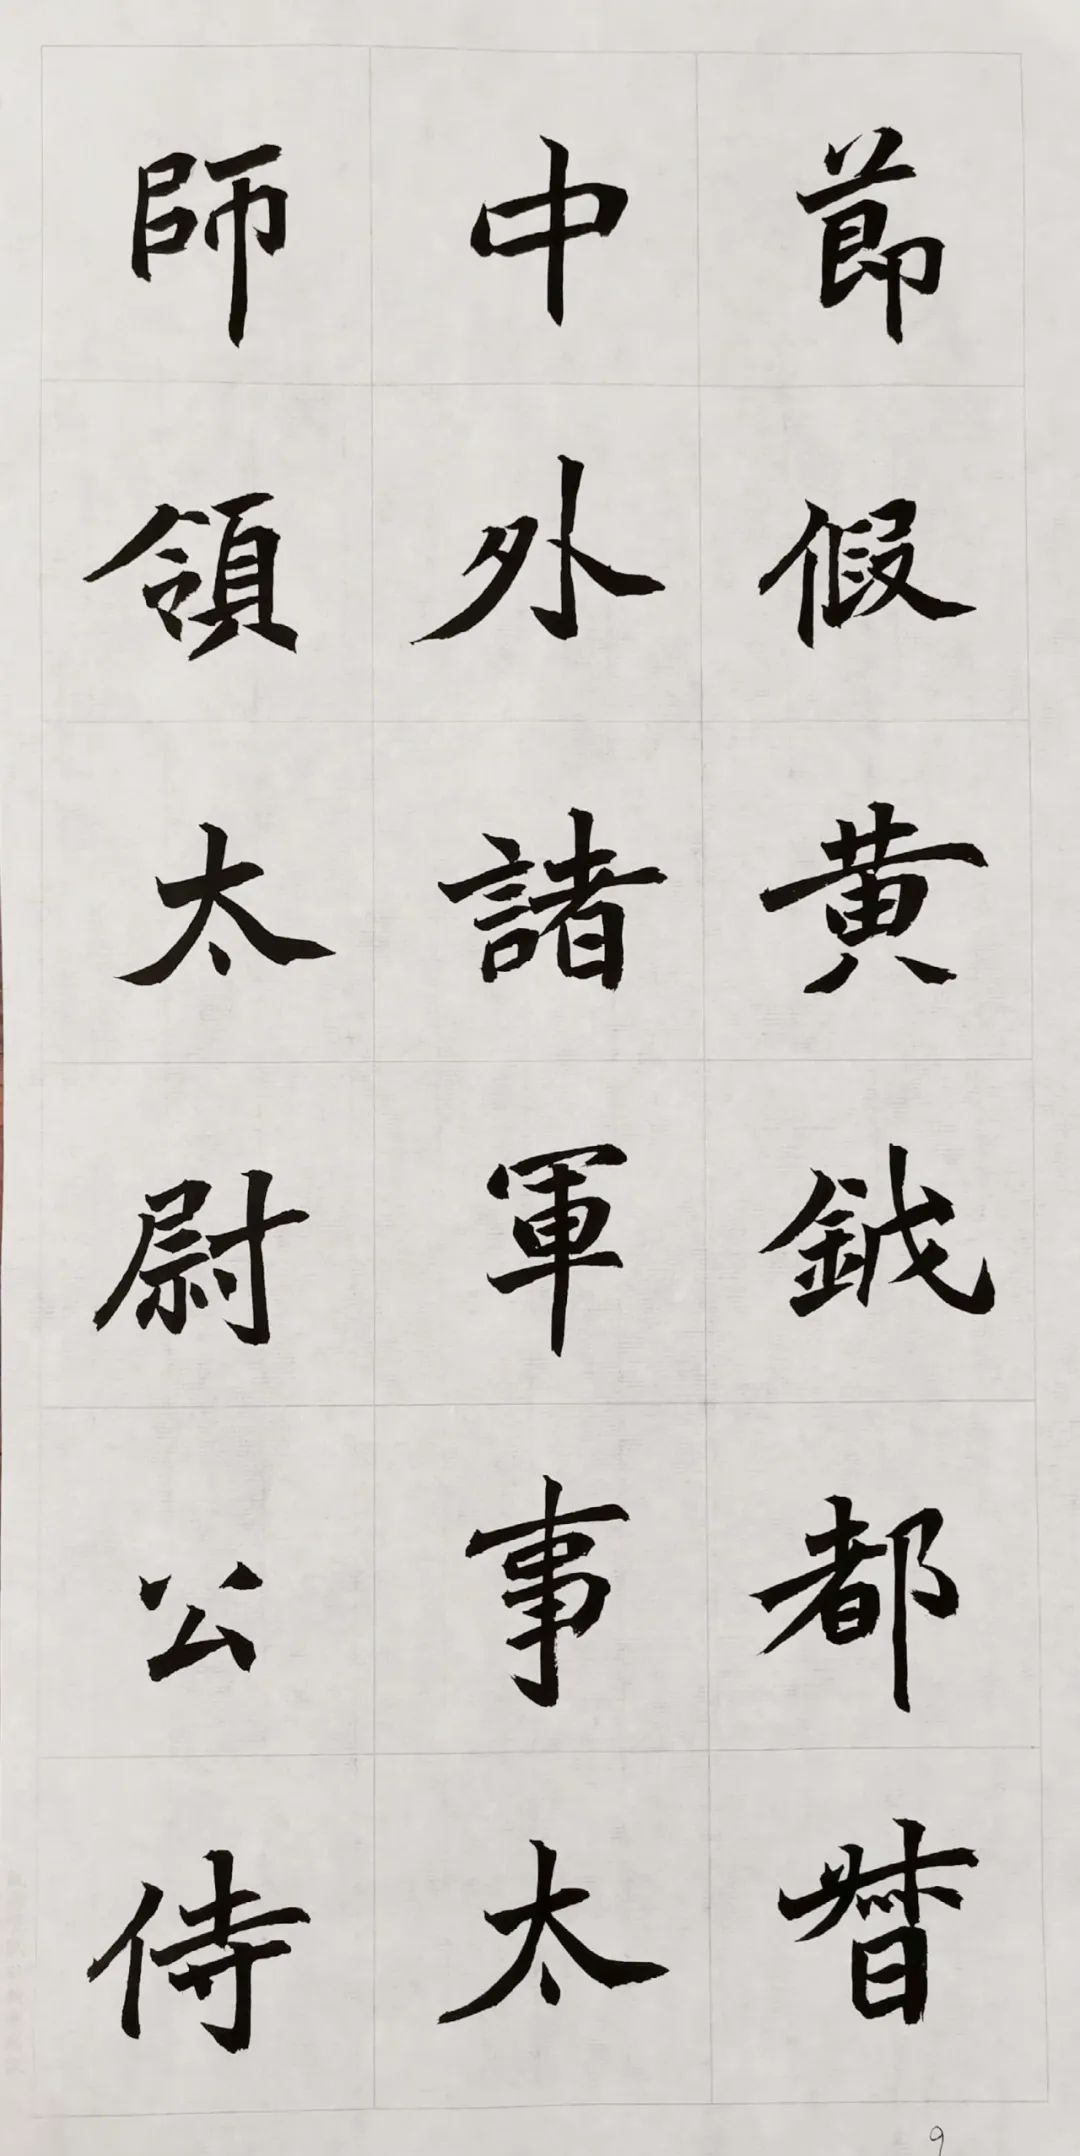 莭假黄鉞都督
中外諸軍事太
師領太尉公侍
9